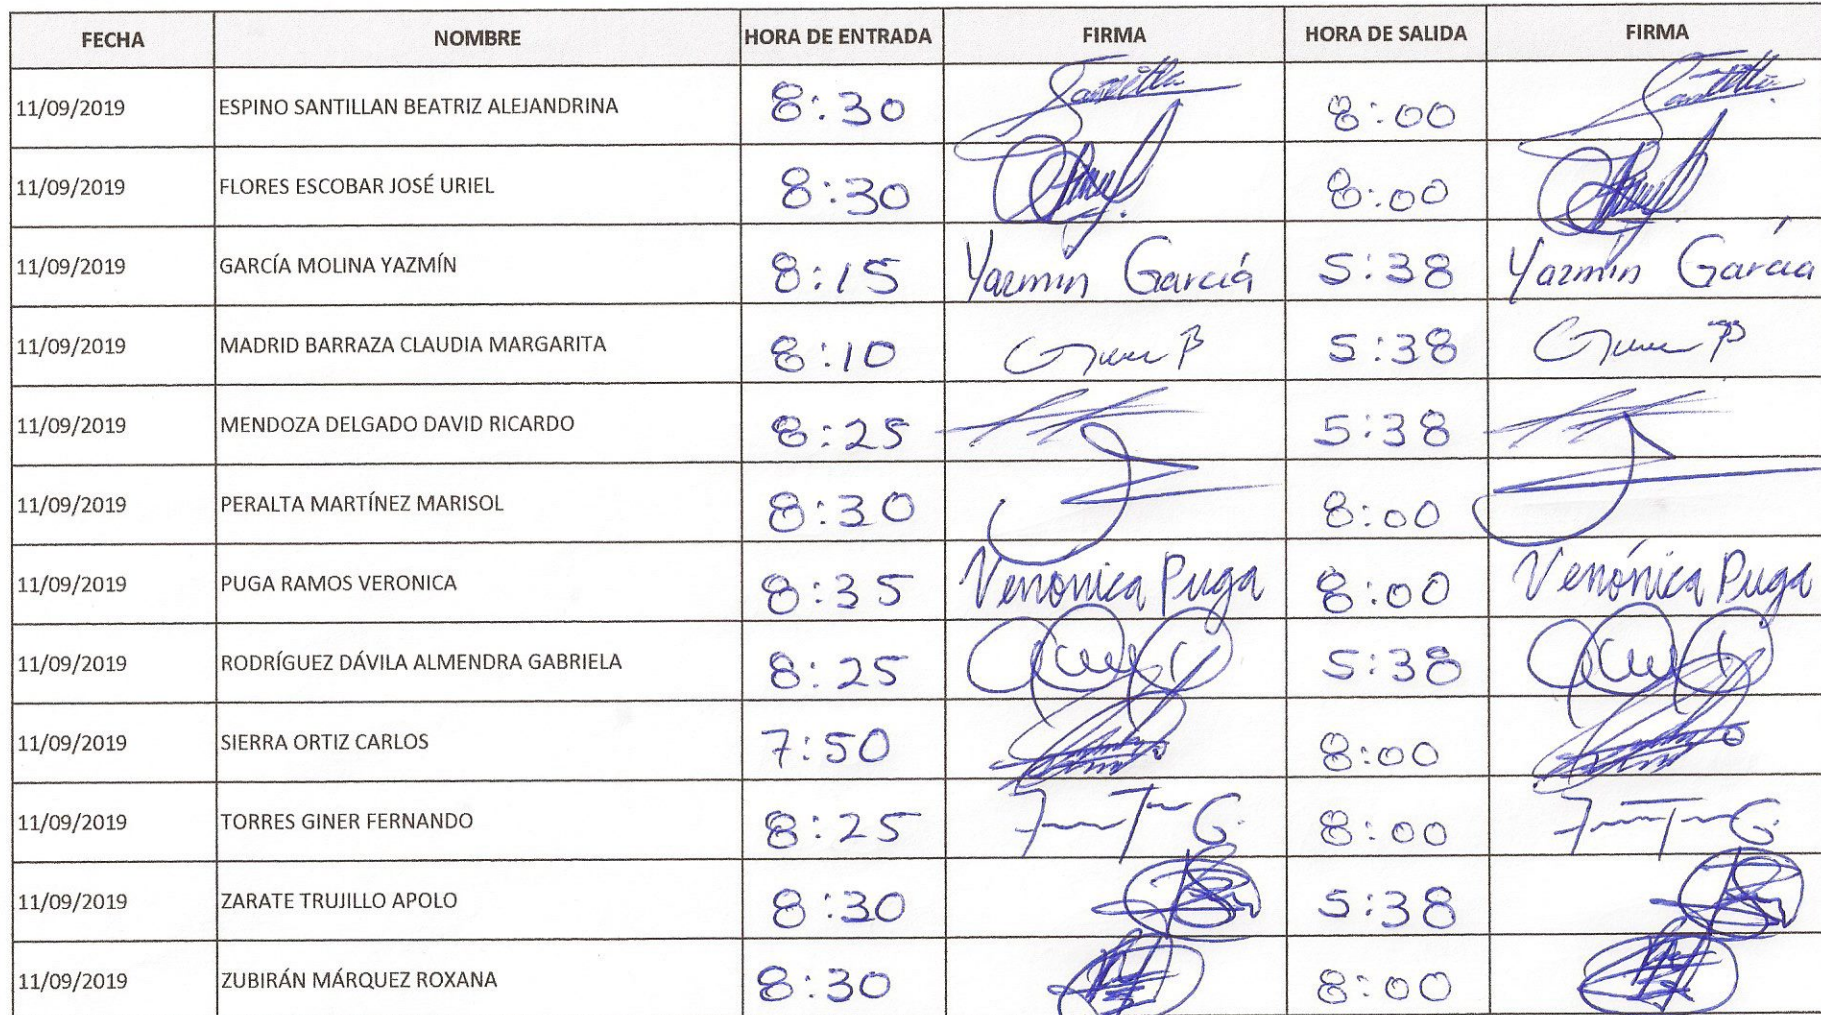 FECHA NOMBRE HORA DE ENTRADA FIRMA HORA DE SALIDA FIRMA
11/09/2019 ESPINO SANTILLAN BEATRIZ ALEJANDRINA 8:30 8:00
11/09/2019 FLORES ESCOBAR JOSÉ URIEL 8:30 8:00
11/09/2019 GARCÍA MOLINA YAZMÍN 8:15 Yazmin García 5:38 Yazmín García
11/09/2019 MADRID BARRAZA CLAUDIA MARGARITA 8:10 5:38
11/09/2019 MENDOZA DELGADO DAVID RICARDO 8:25 5:38
11/09/2019 PERALTA MARTÍNEZ MARISOL 8:30 8:00
11/09/2019 PUGA RAMOS VERONICA 8:35 Veronica Puga 8:00 Verónica Puga
11/09/2019 RODRÍGUEZ DÁVILA ALMENDRA GABRIELA 8:25 5:38
11/09/2019 SIERRA ORTIZ CARLOS 7:50 8:00
11/09/2019 TORRES GINER FERNANDO 8:25 8:00
11/09/2019 ZARATE TRUJILLO APOLO 8:30 5:38
11/09/2019 ZUBIRÁN MÁRQUEZ ROXANA 8:30 8:00